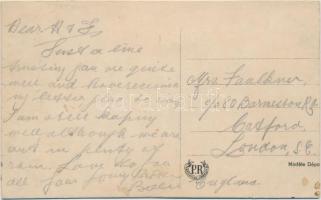 Dear H & F,
Just a line
trusting you are quite
well and have received
my letter
I am still keeping
well although we are
out in plenty of
rain. Love to you
all from your
Mrs Faulkner,
90 Barmeston Rd
Catford,
London, S.E.
England
PR
Modèle Dépo